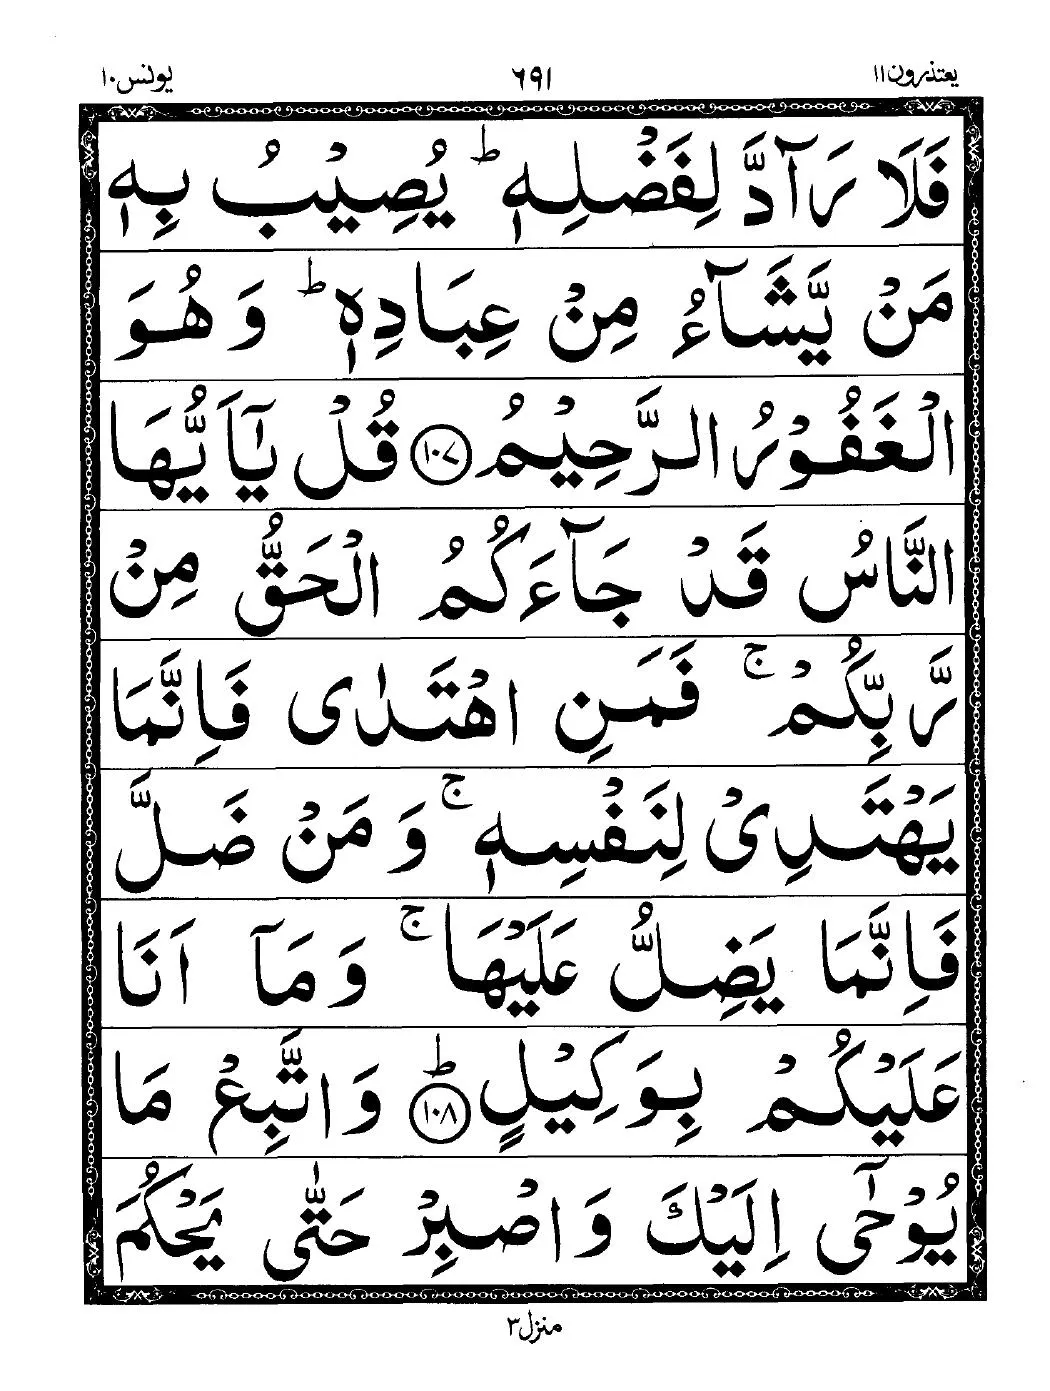 يعتذرون١١
٦٩١
يونس١٠
فَلَا رَآدَّ لِفَضْلِهٖ ؕ يُصِيْبُ بِهٖ
مَنْ يَّشَآءُ مِنْ عِبَادِهٖ ؕ وَ هُوَ
الْغَفُوْرُ الرَّحِيْمُ ١٠٧ قُلْ يٰۤاَيُّهَا
النَّاسُ قَدْ جَآءَكُمُ الْحَقُّ مِنْ
رَّبِّكُمْ ۚ فَمَنِ اهْتَدٰى فَاِنَّمَا
يَهْتَدِىْ لِنَفْسِهٖ ۚ وَ مَنْ ضَلَّ
فَاِنَّمَا يَضِلُّ عَلَيْهَا ۚ وَ مَاۤ اَنَا
عَلَيْكُمْ بِوَكِيْلٍ ؕ ١٠٨ وَ اتَّبِعْ مَا
يُوْحٰۤى اِلَيْكَ وَ اصْبِرْ حَتّٰى يَحْكُمَ
منزل٣